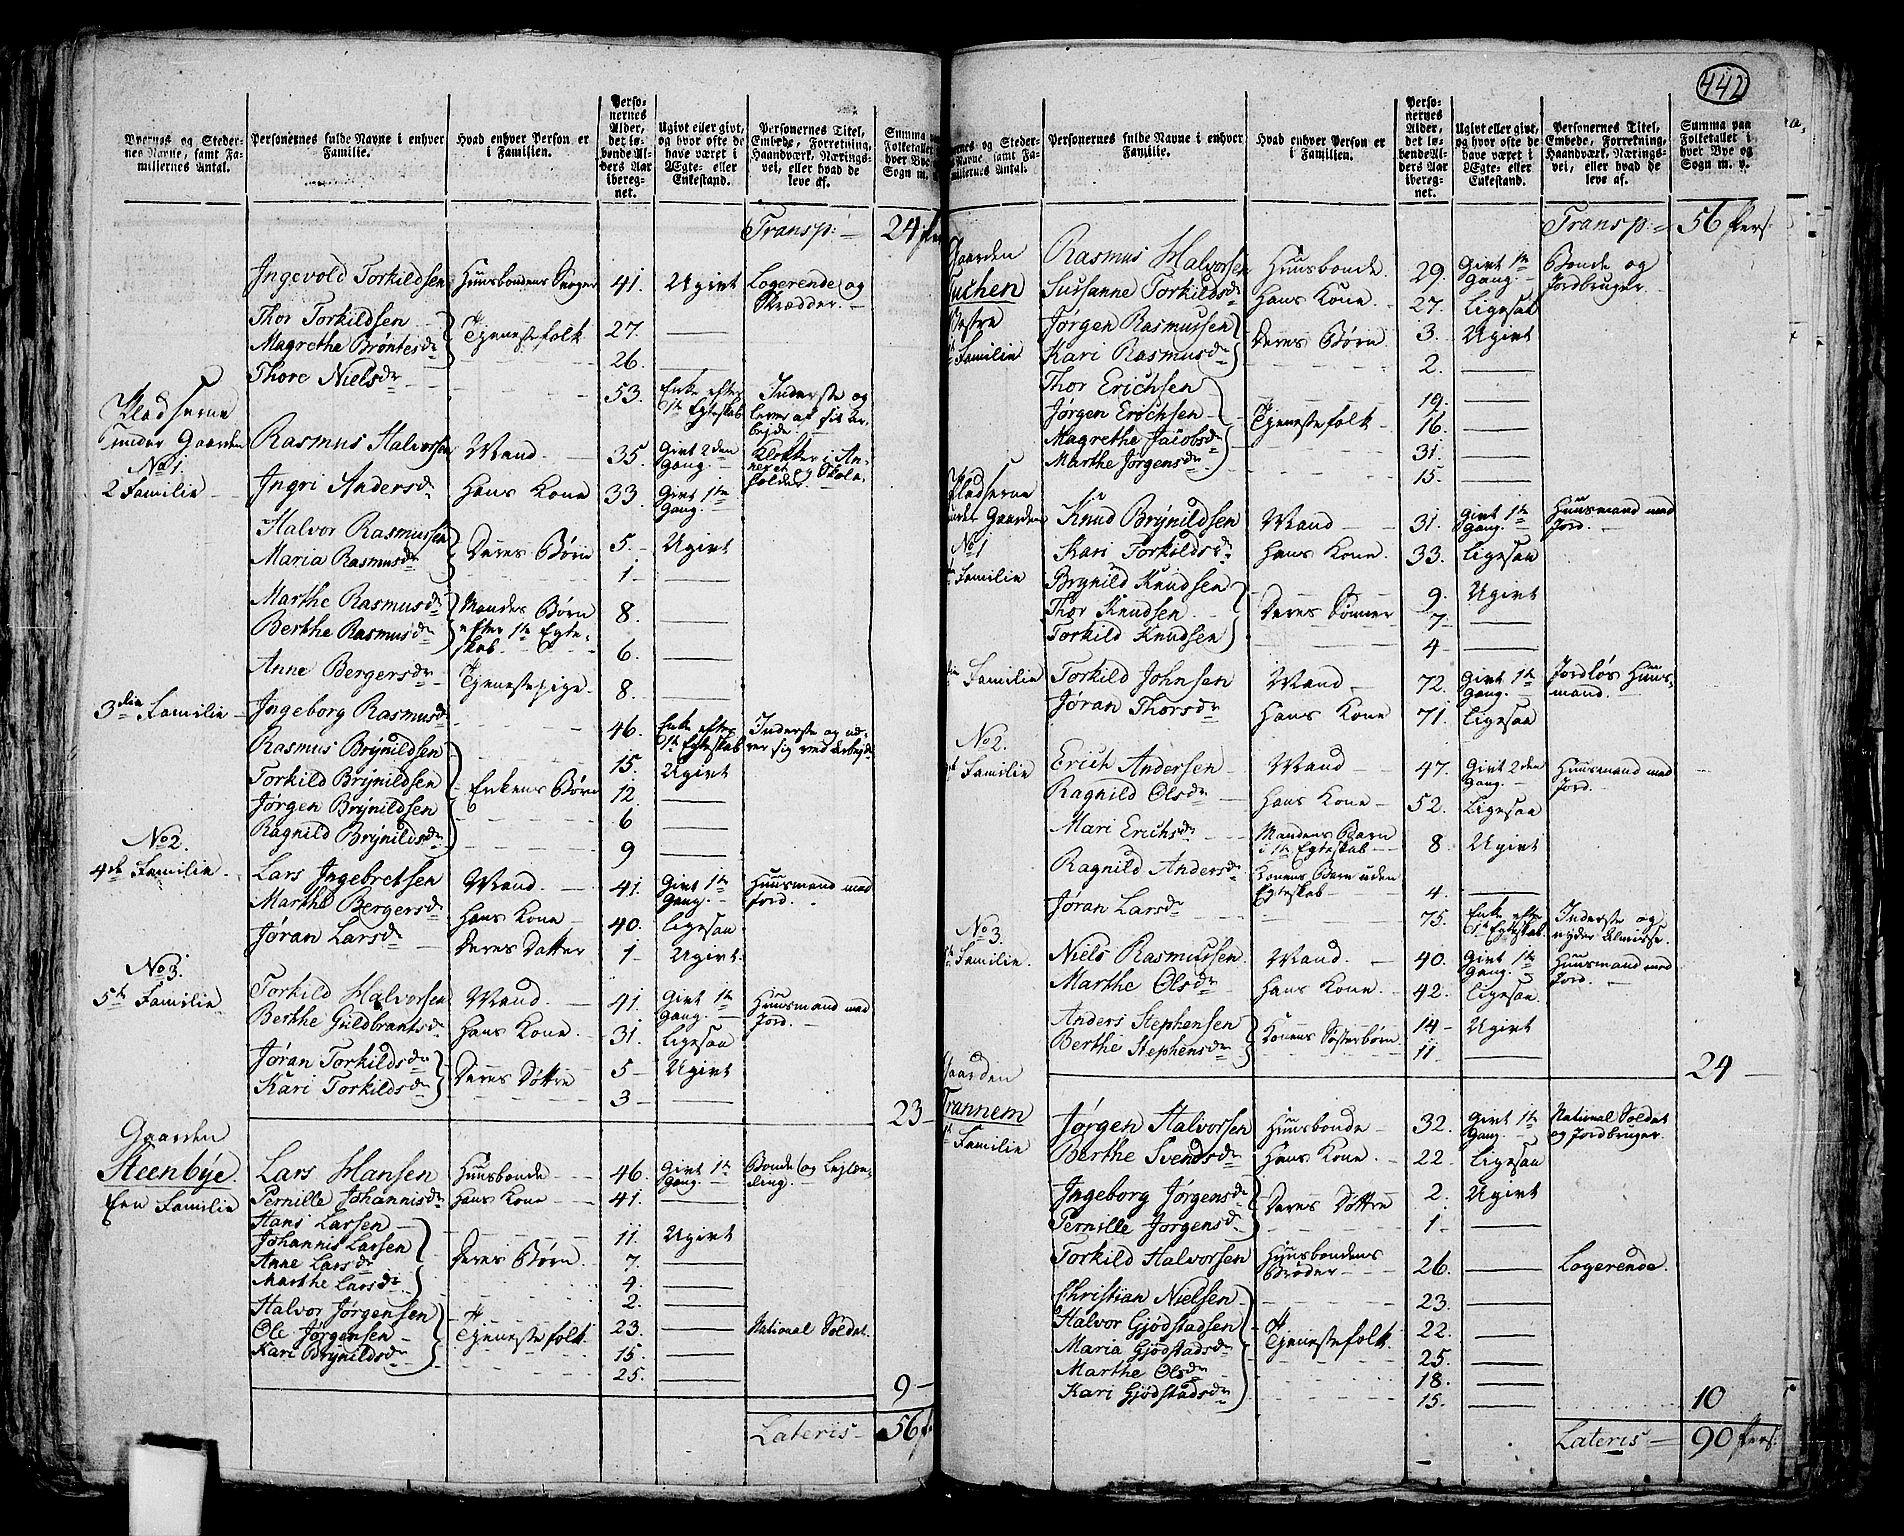 Byernes og Steder-
nes Navne, samt Fa-
miliernes Antal.
Personernes fulde Navne i enhver
Familie.
Hvad enhver Person er
i Familien.
Perso-
nernes
Alder,
det lø-
bende Al-
ders Aar
iberegn-
net.
Ugivt eller givt,
og hvor ofte de
have været i
Ægte- eller
Enkestand.
Personernes Titel,
Embede, Forretning,
Haandværk, Nærings-
vei, eller hvad de
leve af.
Summa paa
Folketallet i
hver Bye og
Sogn m. v.
Transp: 24 Pers
Ingevold Torkildsen Huusbondens Svoger 41. Ugivt Logerende og Skrædder.
Thor Torkildsen Tjenestefolk 27. —
Magrethe Brøntesdr 26. —
Thore Nielsdr 53. Enke efter 1te Egteskab Inderste og lever af sit Arbejde.
Pladserne
under Gaarden
No 1.
2 Familie
Rasmus Halvorsen Mand 35. Givt 2den Gang. Klokker i Annexet og holder Skole.
Ingri Andersdr Hans Kone 33. Givt 1te Gang.
Halvor Rasmussen Deres Børn 5. Ugivt
Maria Rasmusdr 1. —
Marthe Rasmusdr Mandes Børn efter 1te Egteskab 8. —
Berthe Rasmusdr 6. —
Anne Bergersdr Tjenestepige 8. —
3die Familie
Ingeborg Rasmusdr 46. Enke efter 1te Egteskab Inderste og nærer sig ved Arbejde
Rasmus Brynildsen Enkens Børn 15. Ugivt
Torkild Brynildsen 12. —
Jørgen Brynildsen 6 —
Ragnild Brynildsdr 9 —
No 2.
4de Familie
Lars Ingebretsen Mand 41. Givt 1te Gang. Huusmand med Jord.
Marthe Bergersdr Hans Kone 40. Ligesaa
Jøran Larsdr Deres Datter 1 Ugivt.
No 3.
5te Familie
Torkild Halvorsen Mand 41. Givt 1te Gang. Huusmand med Jord.
Berthe Guldbrantsdr Hans Kone 31. Ligesaa
Jøran Torkildsdr Deres Døttre 5 Ugivt
Kari Torkildsdr 3 —
23
Gaarden
Steenbye.
Een Familie
Lars Hansen Huusbonde 46. Givt 1te Gang. Bonde og Lejlænding.
Pernille Johannisdr Hans Kone 41. —
Hans Larsen Deres Børn 11. Ugivt
Johannis Larsen 7. —
Anne Larsdr 4. —
Marthe Larsdr 2. —
Halvor Jørgensen Tjenestefolk 23. — National Soldat.
Ole Jørgensen 15. —
Kari Brynildsdr 25. —
9
Lateris 56 P
442
ernes og Steder-
nes Navne, samt Fa-
miliernes Antal.
Personernes fulde Navne i enhver
Familie.
Hvad enhver Person er
i Familien.
Perso-
nernes
Alder,
det lø-
bende Al-
ders Aar
iberegn-
net.
Ugivt eller givt,
og hvor ofte de
have været i
Ægte- eller
Enkestand.
Personernes Titel,
Embede, Forretning,
Haandværk, Nærings-
vei, eller hvad de
leve af.
Summa paa
Folketallet i
hver Bye og
Sogn m. v.
Transp: 56 Pers:
Gaarden
Vestre
Familie
Rasmus Halvorsen Huusbonde. 29. Givt 1te Gang. Bonde og Jordbruger.
Sussanne Torkildsdr Hans Kone. 27. Ligesaa
Jørgen Rasmussen Deres Børn. 3. Ugivt
Kari Rasmusdr 2. —
Thor Erichsen Tjenestefolk 19. —
Jørgen Erichsen 16. —
Magrethe Jacobsdr 31. —
Marthe Jørgensdr 15. —
Pladserne
under Gaarden
No 1
Familie
Knud Brynildsen Mand 31. Givt 1te Gang. Huusmand med Jord.
Kari Torkildsdr Hans Kone. 33. Ligesaa
Brynild Knudsen Deres Sønner 9. Ugivt
Thor Knudsen 7 —
Torkild Knudsen 4 —
Familie
Torkild Johnsen Mand 72. Givt 1te Gang. Jordløs Huusmand.
Jøran Thorsdr Hans Kone 71. Ligesaa
No 2.
Familie
Erich Andersen Mand 47. Givt 2den Gang. Huusmand med Jord.
Ragnild Olsdr Hans Kone 52. Ligesaa
Mari Erichsdr Mandens Barn i 1te Egteskab 8 Ugivt
Ragnild Andersdr Konens Barn uden Egteskab 4. —
Jøran Larsdr 75. Enke efter 1te Egteskab. Inderste og nyder Almisse.
No 3.
Familie.
Niels Rasmussen Mand. 40. Givt 1te Gang. Huusmand med Jord.
Marthe Olsdr Hans Kone 42. Ligesaa.
Anders Stephensen Konens Søsterbørn 14 Ugivt
Berthe Stephensdr 11. —
24
Gaarden
Trannem
Familie
Jørgen Halvorsen Huusbonde 32. Givt 1te Gang. National Soldat og Jordbruger.
Berthe Svendsdr Hans Kone. 22. Ligesaa
Ingeborg Jørgensdr Deres Døttre 2. Ugivt
Pernille Jørgensdr 1 —
Torkild Halvorsen Huusbondens Broder 26. — Logerende.
Christian Nielsen Tjenestefolk 23. —
Halvor Gjødstadsen 22. —
Maria Gjødstadsdr 25. —
Marthe Olsdr 18. —
Kari Gjødstadsdr 15. —
10
Lateris 90 Pers: